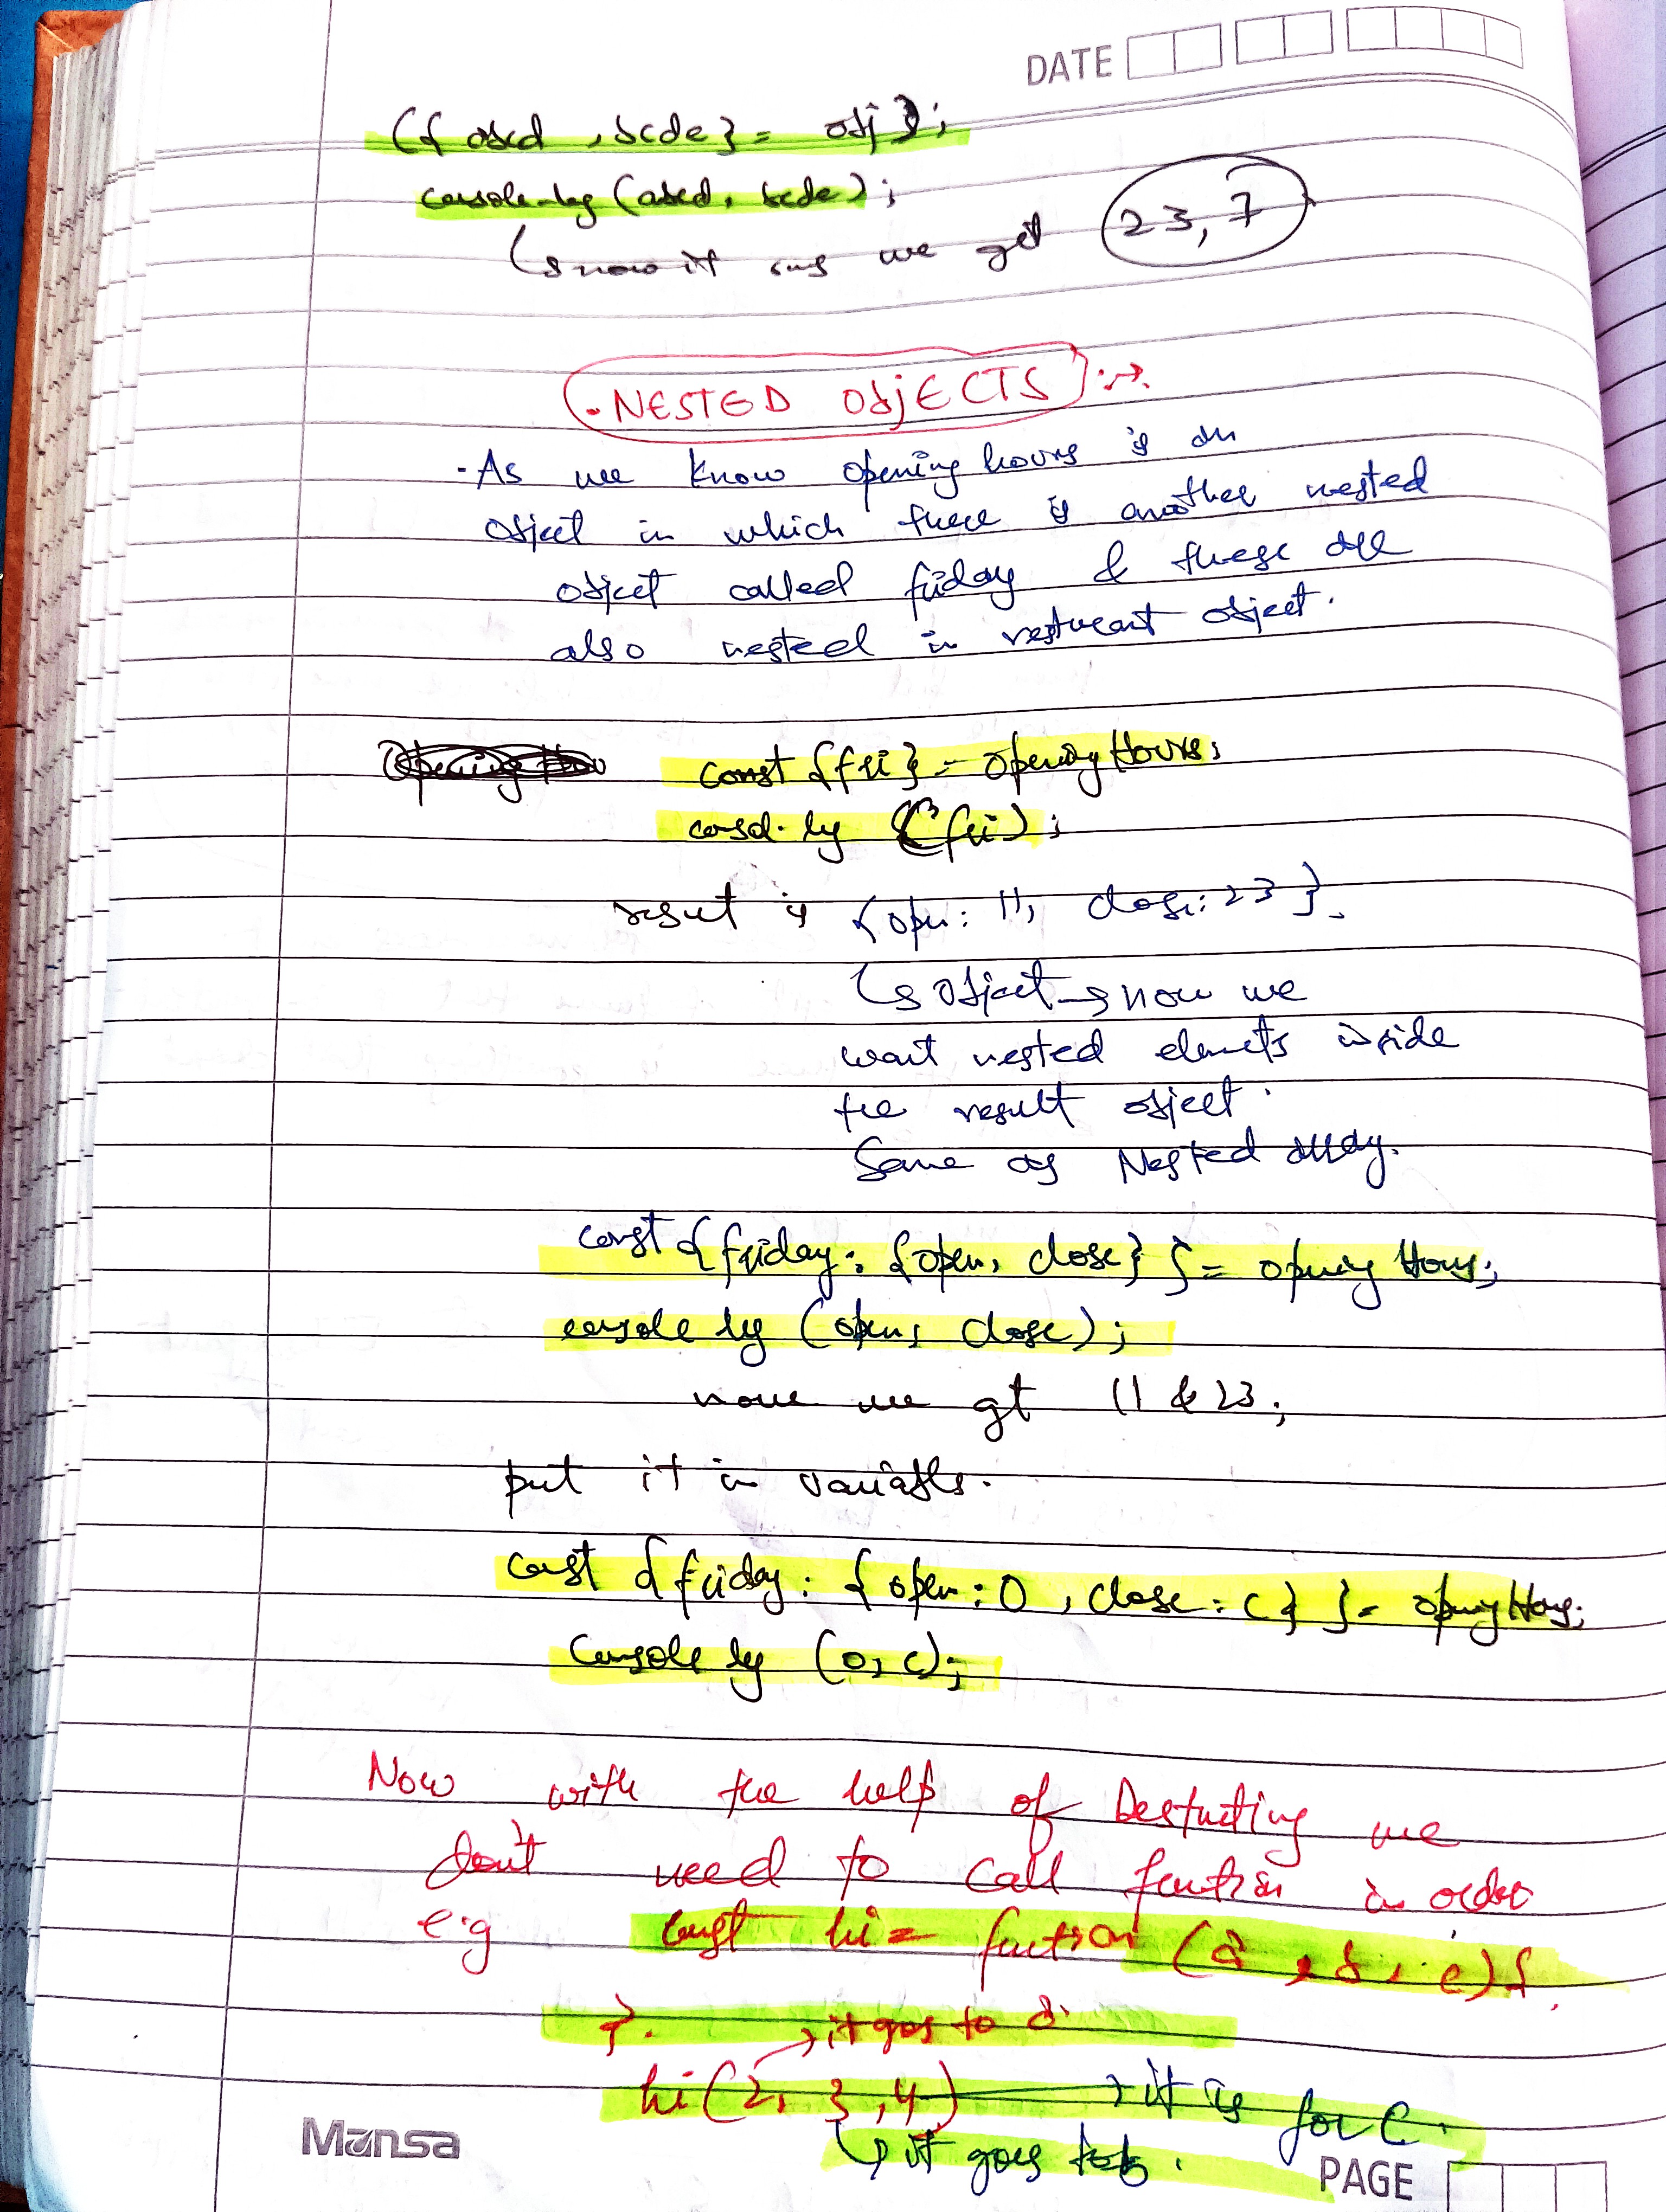 DATE
({ abcd , bcde } = obj };
console.log (abcd, bcde);
↳ now it runs we get 23, 7
• NESTED ObjECTS :→
• As we know opening hours is an
object in which there is another nested
object called friday & these all
also nested in resturant object.
const {fri} = openingHours;
consol.log (fri);
result is {open: 11, close: 23}.
↳ Object → now we
want nested elements inside
the result object.
Same as Nested array.
const {friday: {open, close} } = opening Hours;
console log (open, close);
now we gt 11 & 23;
put it in variabls.
const {friday: {open: O, close: c} } = openingHours;
Console log (o, c);
Now with the help of Destructing we
don't need to call function in order
e.g const hi = function (a, b, c) {
}. → it goes to a.
hi (2, 3, 4) → it is for C.
↳ it goes to b.
Mansa
PAGE